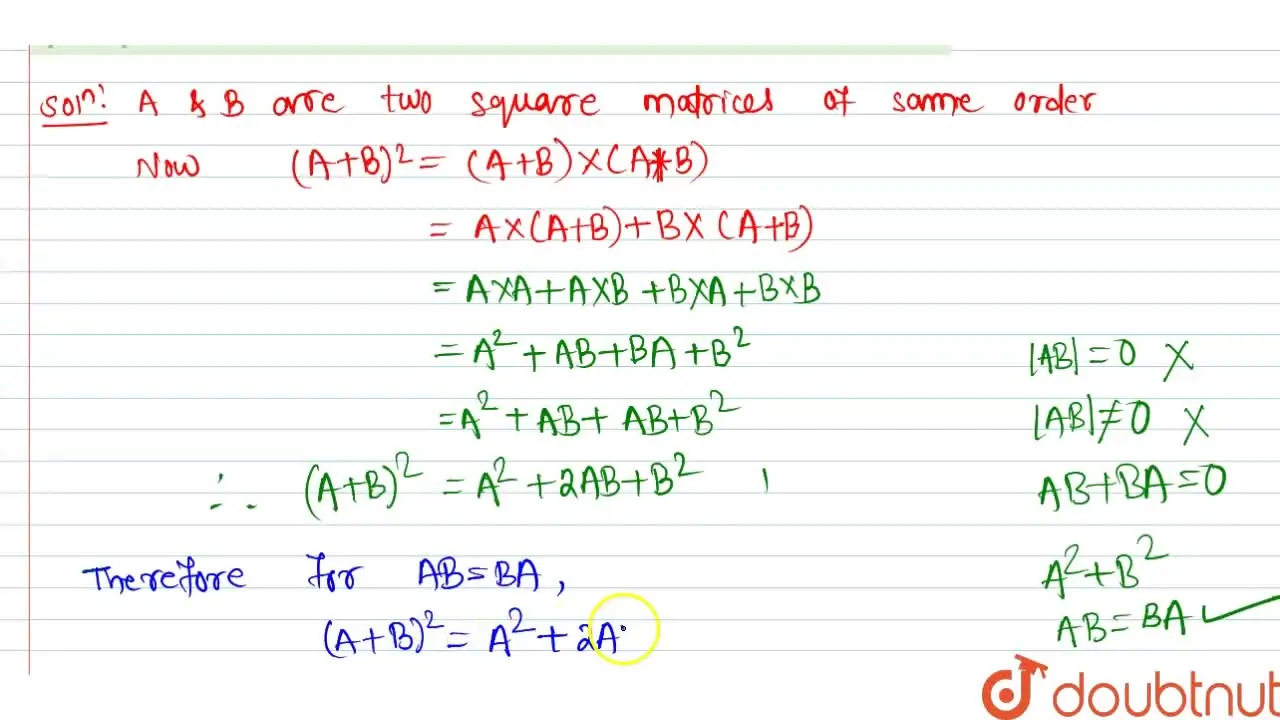 Soln: A & B are two square matrices of same order
Now (A+B)² = (A+B)×(A+B)
= A×(A+B)+B×(A+B)
= A×A+A×B+B×A+B×B
= A²+AB+BA+B²
= A²+AB+AB+B²
∴ (A+B)² = A²+2AB+B²
Therefore for AB=BA,
(A+B)² = A²+2A
|AB|=0 ×
|AB|≠0 ×
AB+BA=0
A²+B²
AB=BA ✓
doubtnut